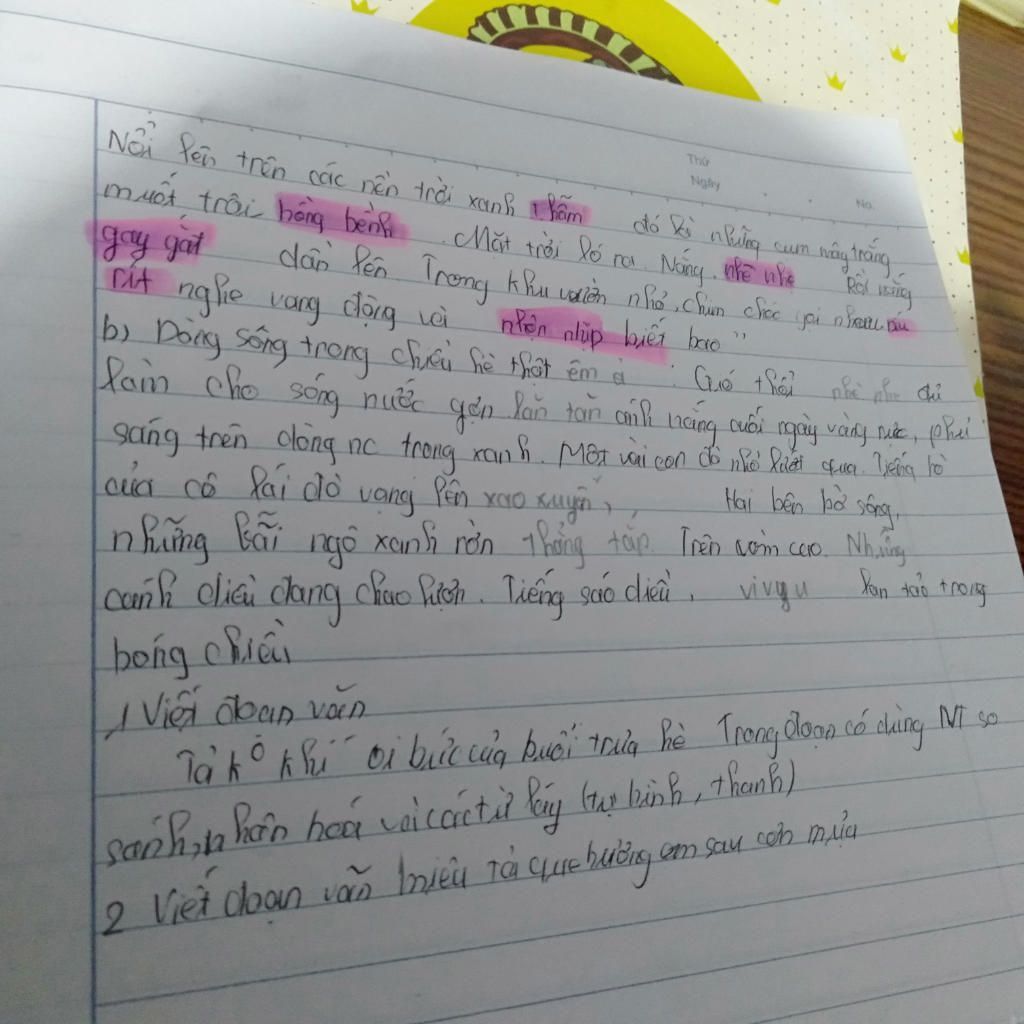 Thứ
Ngày
No.
Nổi lên trên các nền trời xanh thẫm đó là những cụm mây trắng
muốt trôi bồng bềnh. Mặt trời ló ra. Nắng nhè nhẹ Rồi nắng
gay gắt dần lên Trong khu vườn nhỏ, chim chóc gọi nhau ríu
rít nghe vang động và nhộn nhịp biết bao"
b) Dòng sông trong chiều hè thật êm ả. Gió thổi nhè nhẹ đủ
làm cho sóng nước gợn lăn tăn ánh nắng cuối ngày vàng rực, phải
sáng trên dòng nc trong xanh. Một vài con đò nhỏ lướt qua. Tiếng hò
của cô lái đò vang lên xao xuyến, Hai bên bờ sông,
những bãi ngô xanh rờn thẳng tắp. Trên vòm cao. Những
cánh diều đang chao lượn. Tiếng sáo diều, vivyu lan toả trong
bóng chiều
1, Viết đoạn văn
Tả k° khí oi bức của buổi trưa hè Trong đoạn có dùng NT so
sánh, nhân hoá và các từ láy (tự hình, thanh)
2 Viết đoạn văn miêu tả quê hương em sau cơn mưa